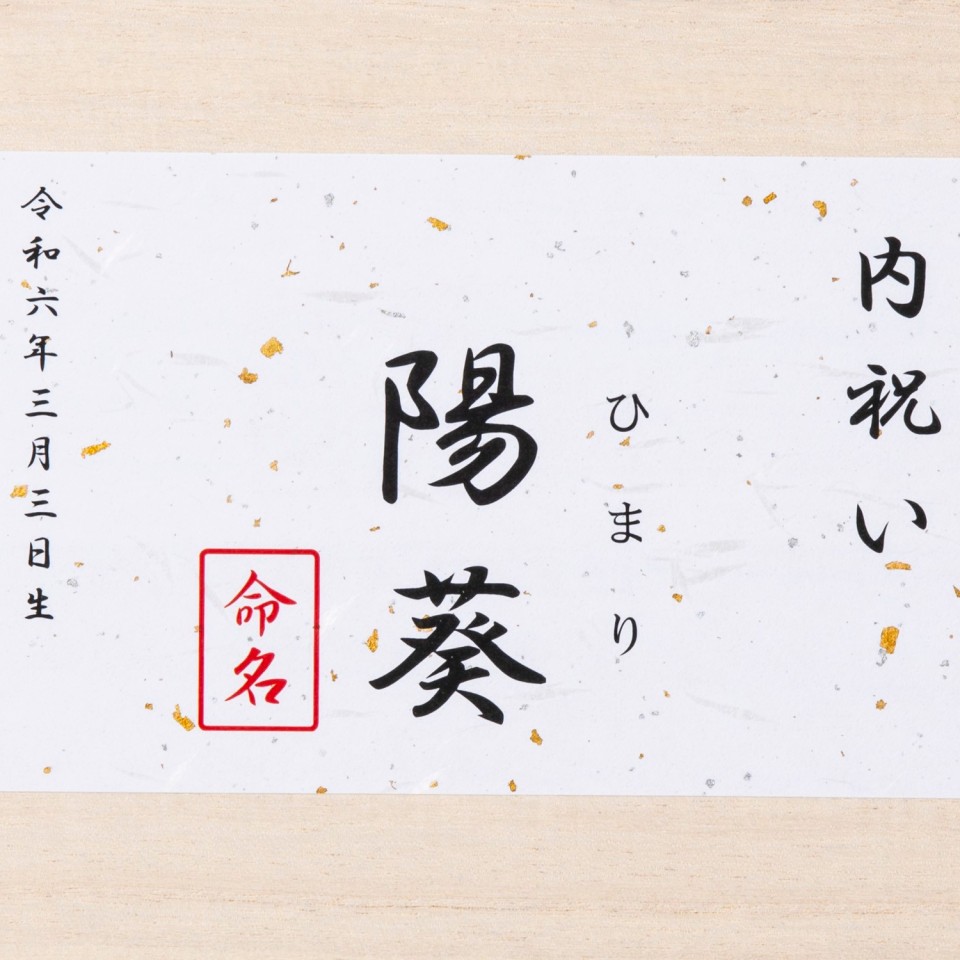 内祝い
ひまり
陽葵
命名
令和六年三月三日生